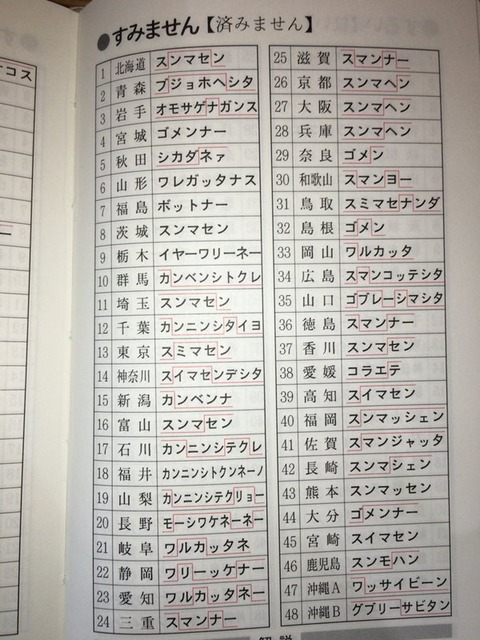 オコス
●すみません【済みません】
1 北海道 スンマセン
2 青森 ブジョホヘシタ
3 岩手 オモサゲナガンス
4 宮城 ゴメンナー
5 秋田 シカダネァ
6 山形 ワレガッタナス
7 福島 ボットナー
8 茨城 スンマセン
9 栃木 イヤーワリーネー
10 群馬 カンベンシトクレ
11 埼玉 スンマセン
12 千葉 カンニンシタイヨ
13 東京 スミマセン
14 神奈川 スイマセンデシタ
15 新潟 カンベンナ
16 富山 スンマセン
17 石川 カンニンシテクレ
18 福井 カンニンシトクンネーノ
19 山梨 カンニンシテクリョー
20 長野 モーシワケネーネー
21 岐阜 ワルカッタネ
22 静岡 ワリーッケナー
23 愛知 ワルカッタネー
24 三重 スマンナー
25 滋賀 スマンナー
26 京都 スンマヘン
27 大阪 スンマヘン
28 兵庫 スンマヘン
29 奈良 ゴメン
30 和歌山 スマンヨー
31 鳥取 スミマセナンダ
32 島根 ゴメン
33 岡山 ワルカッタ
34 広島 スマンコッテシタ
35 山口 ゴブレーシマシタ
36 徳島 スマンナー
37 香川 スンマセン
38 愛媛 コラエテ
39 高知 スイマセン
40 福岡 スンマッシェン
41 佐賀 スマンジャッタ
42 長崎 スンマシェン
43 熊本 スンマッセン
44 大分 ゴメンナー
45 宮崎 スイマセン
46 鹿児島 スンモハン
47 沖縄A ワッサイビーン
48 沖縄B グブリーサビタン